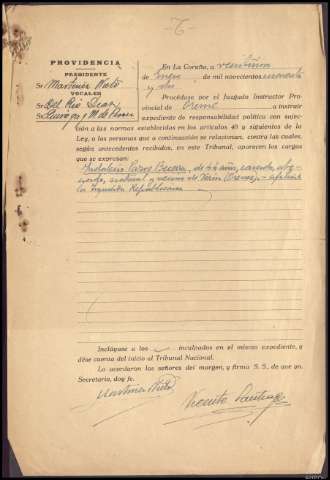 PROVIDENCIA
PRESIDENTE
Sr. Martínez Nieto
VOCALES
Sr. Del Río Díaz
Sr.
En La Coruña, a veintiuno
de Enero de mil novecientos cuarenta
y dos
Procédase por el Juzgado Instructor Pro-
vincial de Orense a instruir
expediente de responsabilidad política con suje-
ción a las normas establecidas en los artículos 45 y siguientes de la
Ley, a las personas que a continuación se relacionan, contra las cuales,
según antecedentes recibidos, en este Tribunal, aparecen los cargos
que se expresan:
de 44 años, casado,
natural y vecino de Verín (Orense).- afiliado
a Izquierda Republicana
Inclúyase a los inculpados en el mismo expediente, y
dése cuenta del inicio al Tribunal Nacional.
Lo acordaron los señores del margen, y firma S. S., de que yo,
Secretario, doy fe.
Martínez Nieto
Vicente Santiago